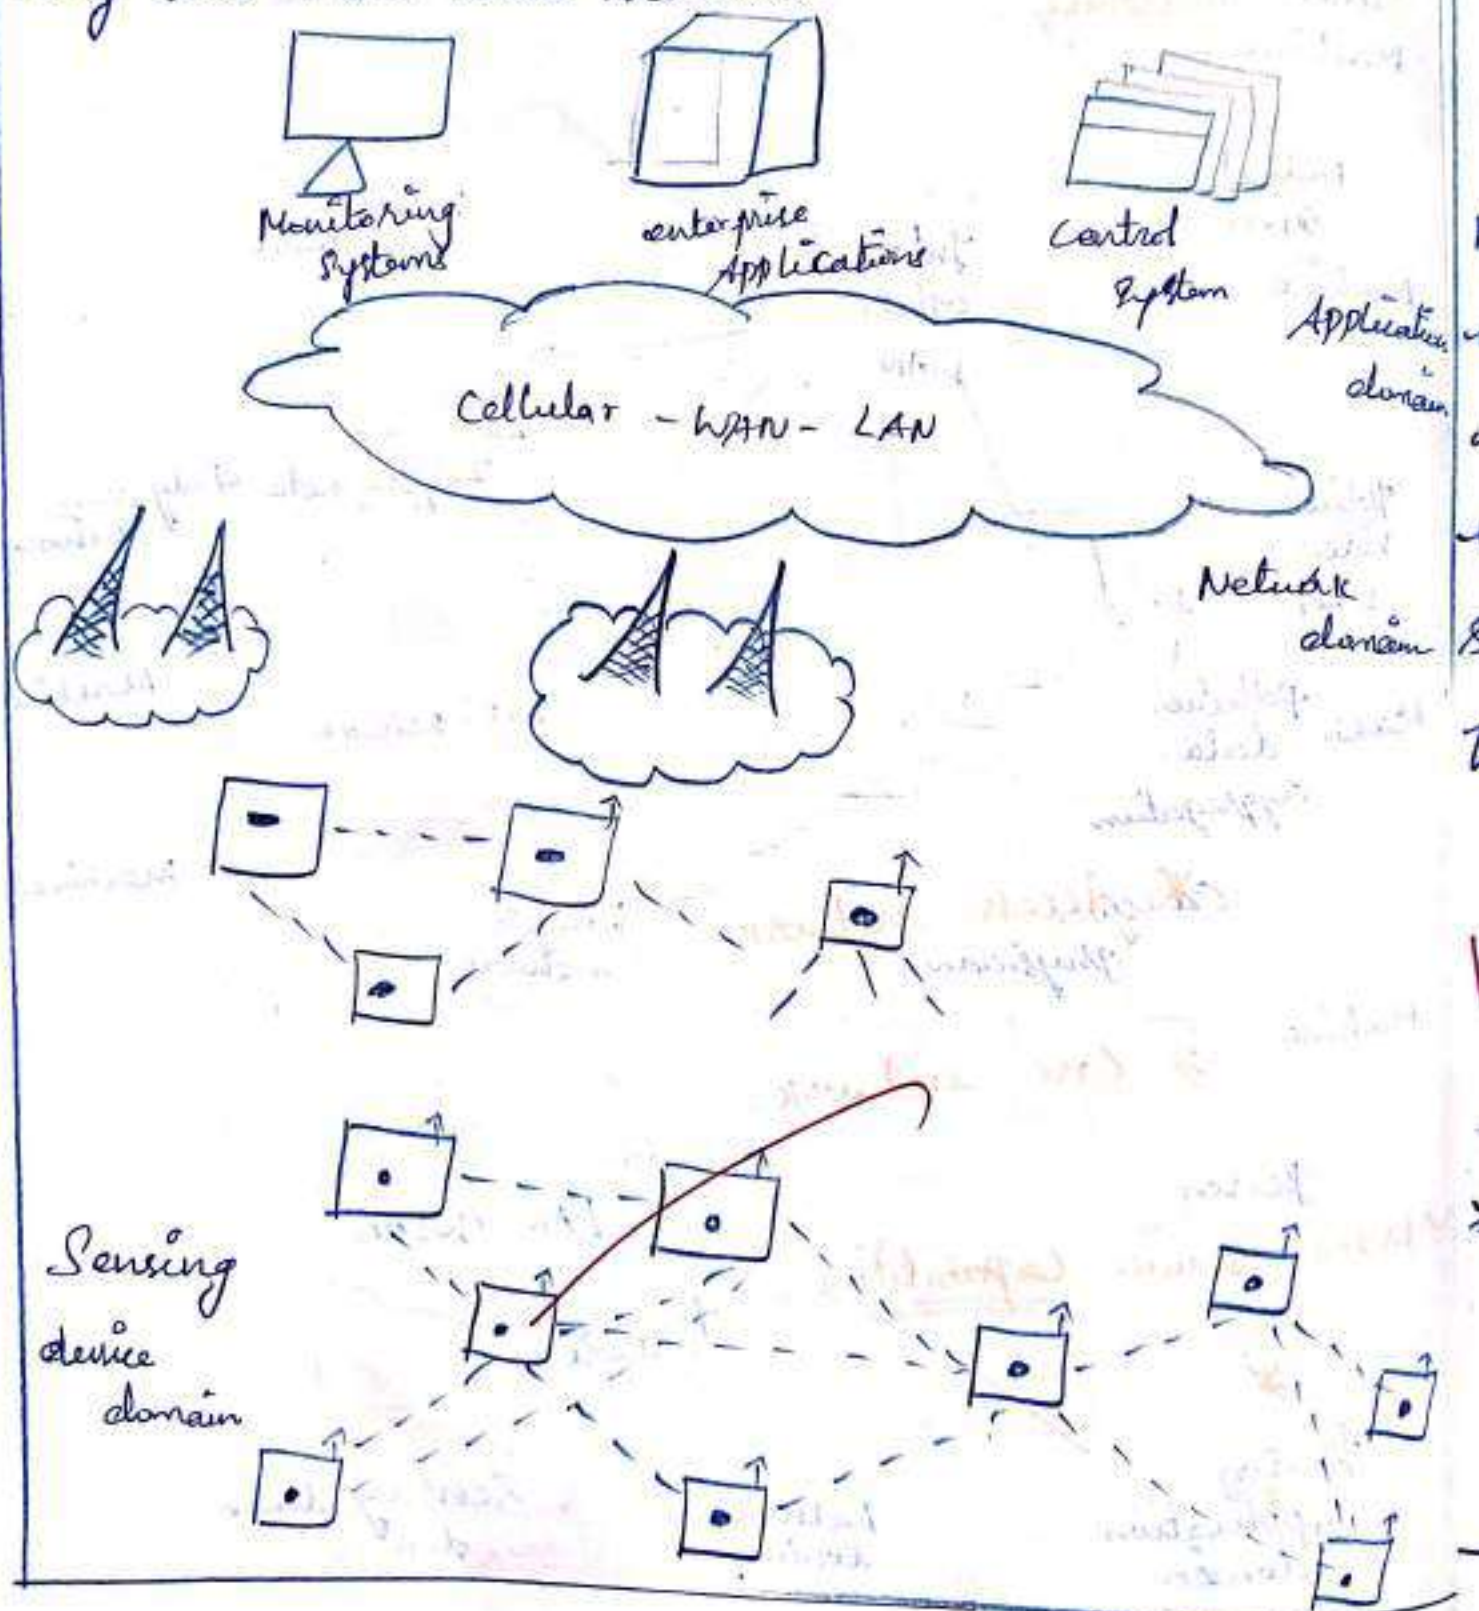 Monitoring
Systems
enterprise
Applications
Control
System
Application
domain
Cellular - WAN - LAN
Network
domain
Sensing
device
domain